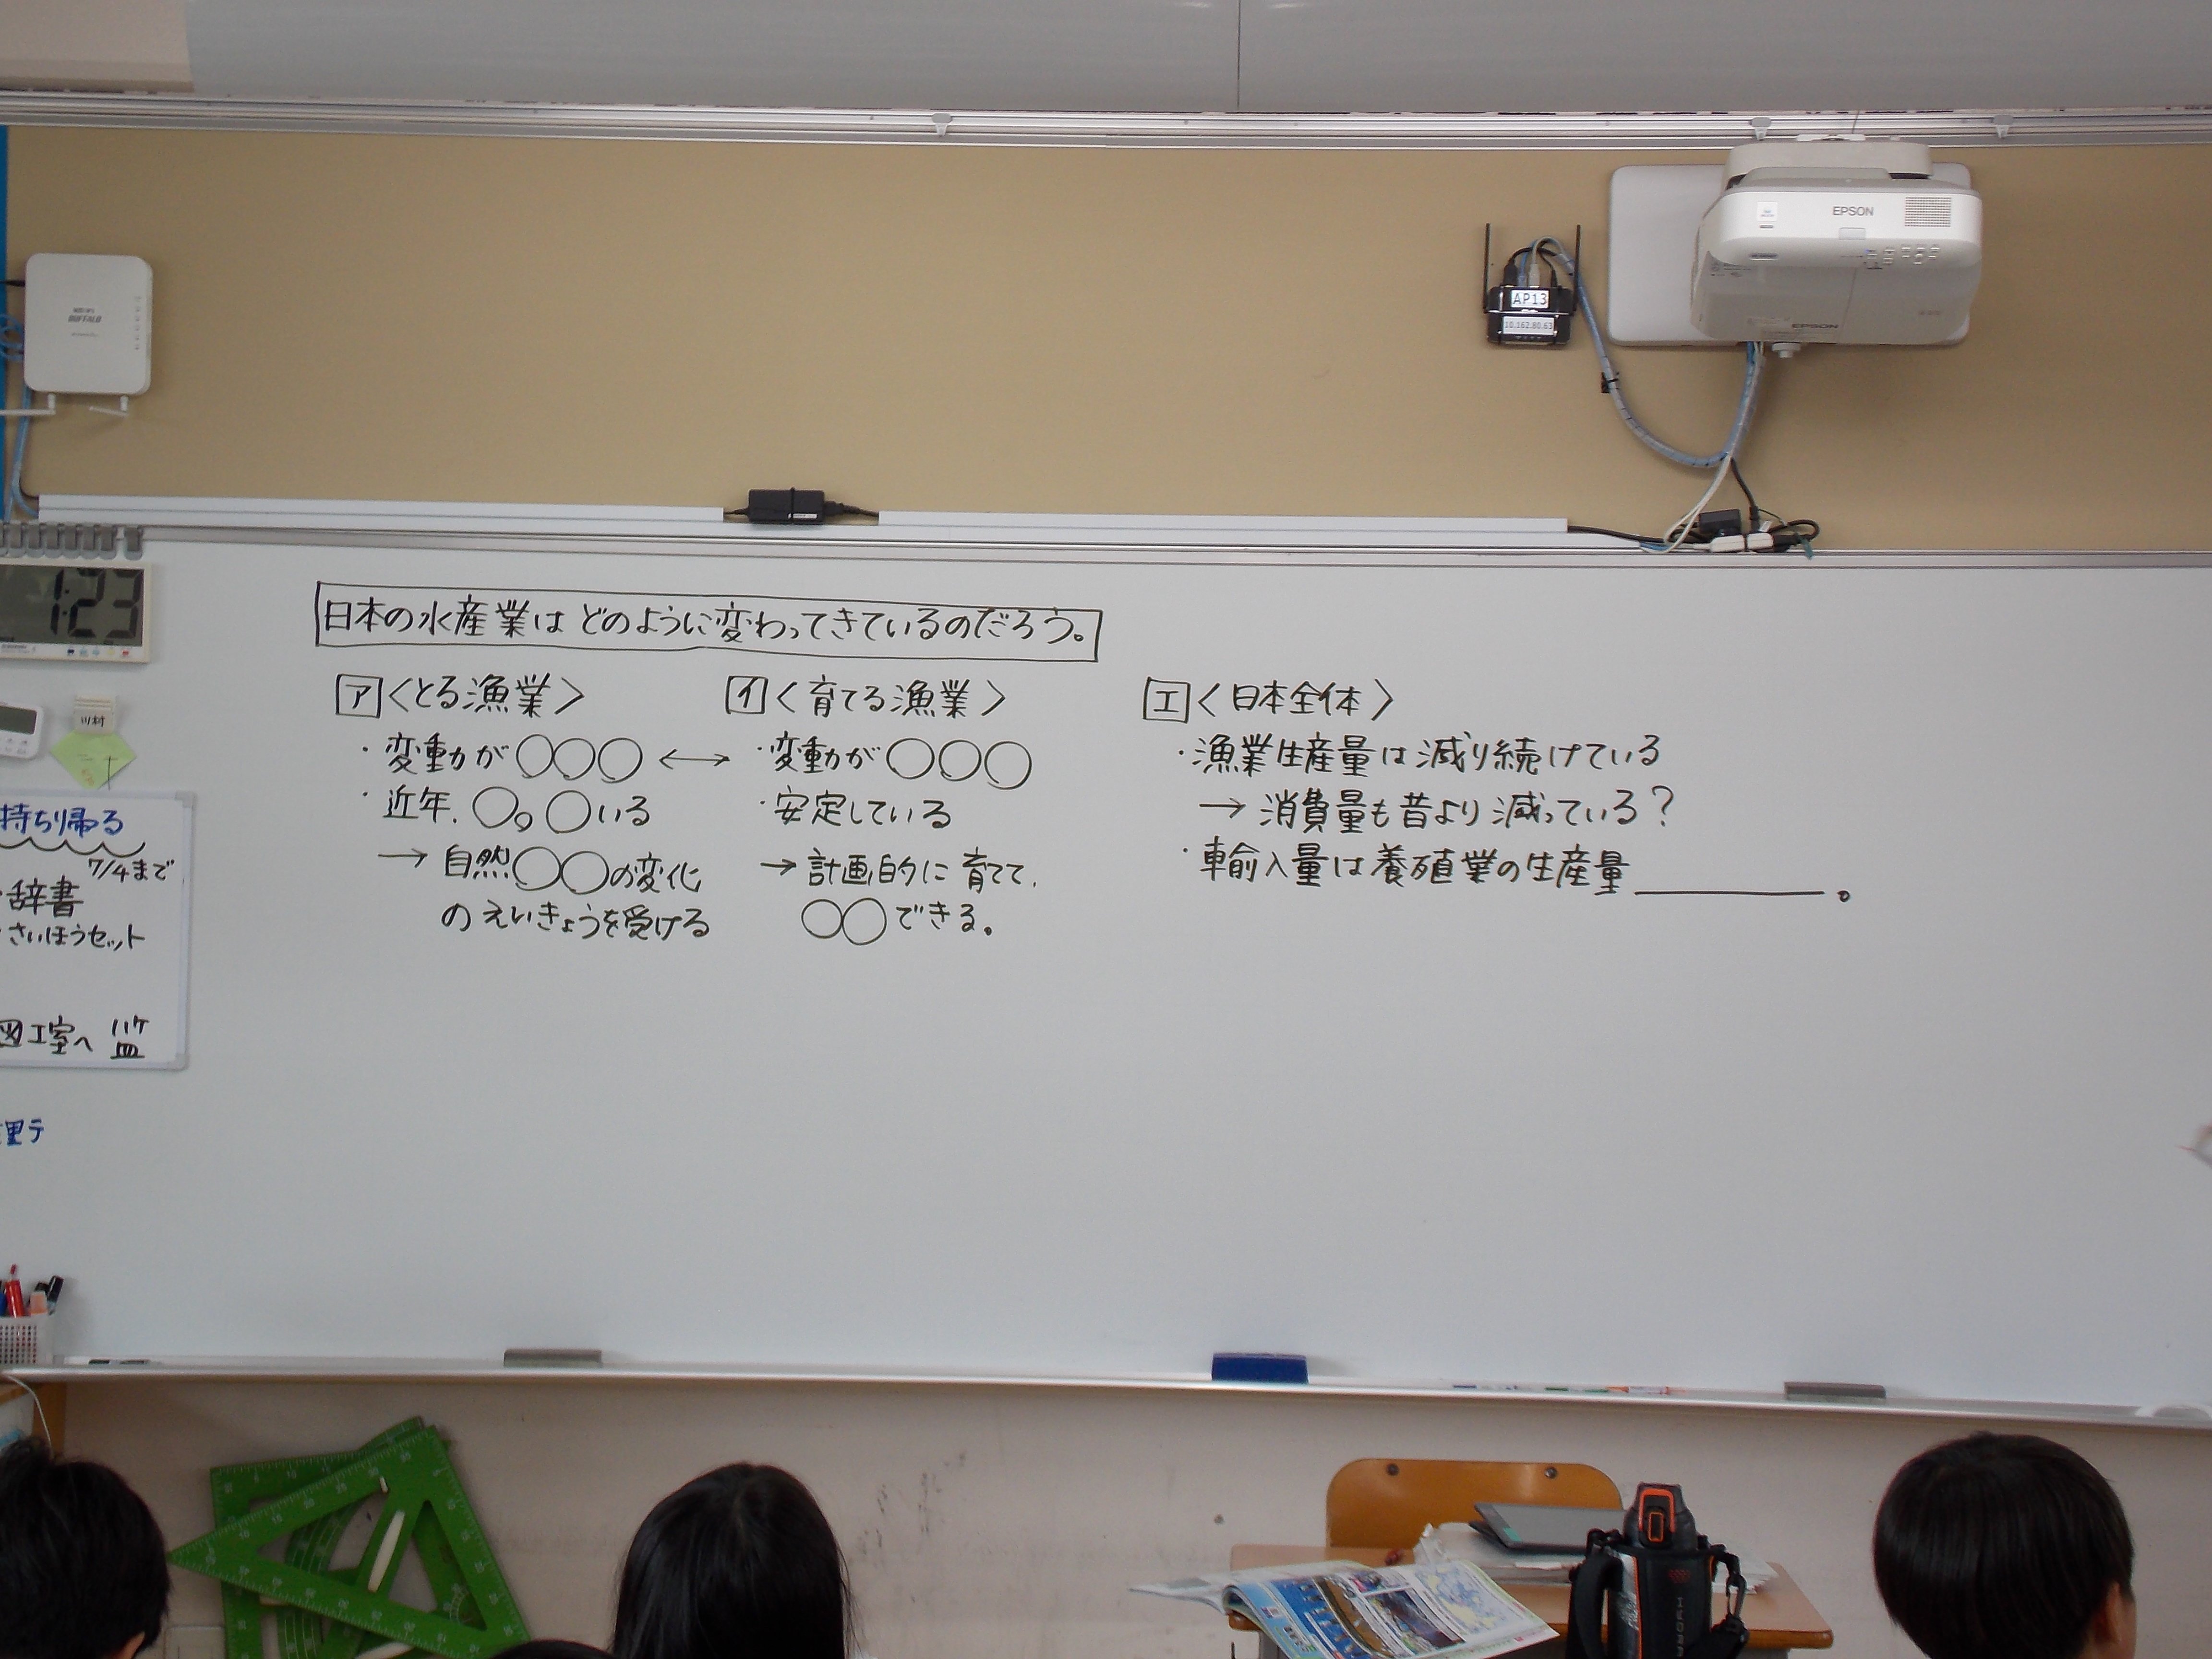 EPSON
EPSON
BUFFALO
AP13
10.162.80.63
1:23
川村
日本の水産業は どのように変わってきているのだろう。
ア〈とる漁業〉
・変動が○○○ ←→
・近年、○。○いる
→ 自然○○の変化
のえいきょうを受ける
イ〈育てる漁業〉
・変動が○○○
・安定している
→ 計画的に育てて、
○○できる。
エ〈日本全体〉
・漁業生産量は減り続けている
→ 消費量も昔より減っている？
・輸入量は養殖業の生産量＿＿＿＿＿。
持ち帰る
7/4まで
・辞書
・さいほうセット
図工室へ
理テ